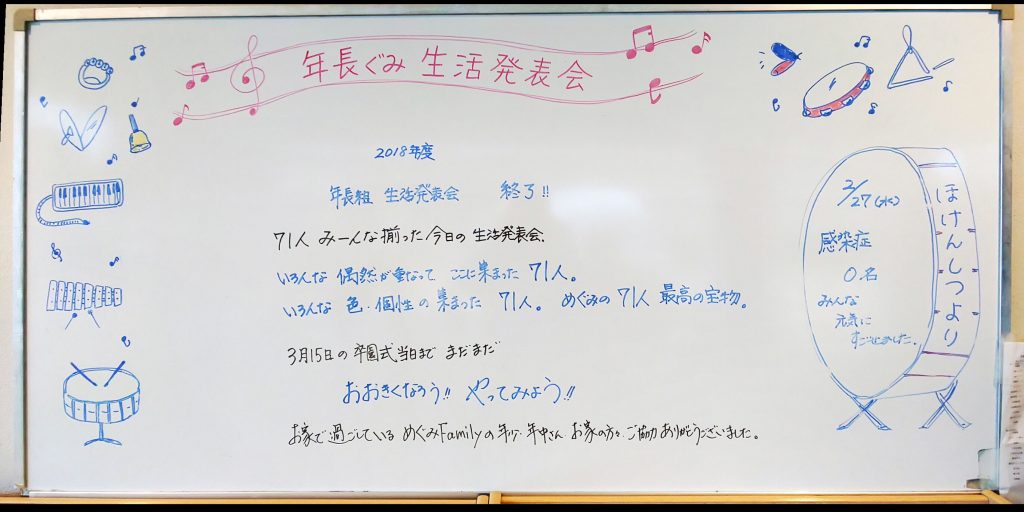 年長ぐみ 生活発表会
2018年度
年長組 生活発表会 終了!!
71人 みーんな揃った 今日の 生活発表会、
いろんな 偶然が重なって ここに集まった 71人。
いろんな 色・個性の 集まった 71人。 めぐみの 71人 最高の宝物。
3月15日の 卒園式当日まで まだまだ
おおきくなろう!! やってみよう!!
お家で過ごしている めぐみFamilyの年少・年中さん お家の方々 ご協力ありがとうございました。
ほけんしつより
2/27(水)
感染症
0名
みんな
元気に
すごしました.